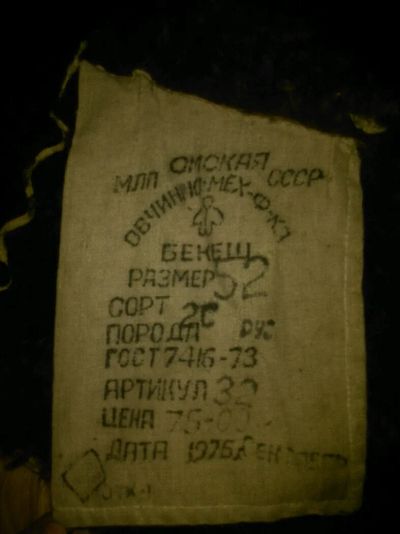 ОМСКАЯ
МЛП ОВЧИННО-МЕХ-Ф-КА СССР
БЕКЕШ
РАЗМЕР 52
СОРТ 2С
ПОРОДА РУС
ГОСТ 7416-73
АРТИКУЛ 32
ЦЕНА 75-00
ДАТА 1975
ОТК-1